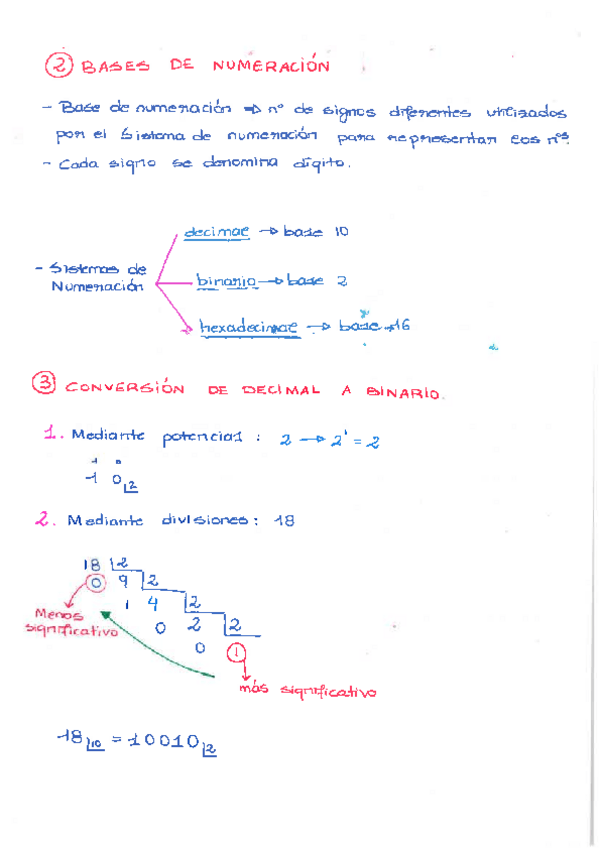 2 BASES DE NUMERACIÓN
- Base de numeración => nº de signos diferentes utilizados
por el Sistema de numeración para representar los nºs.
- Cada signo se denomina dígito.
decimal → base 10
- Sistemas de
Numeración
binario → base 2
hexadecimal → base 16
3 CONVERSIÓN DE DECIMAL A BINARIO.
1. Mediante potencias : 2 → 2¹ = 2
1 0
1 0 |2
2. Mediante divisiones: 18
18 |2
0 9 |2
1 4 |2
0 2 |2
0 1
Menos
significativo
más significativo
18|10 = 10010|2